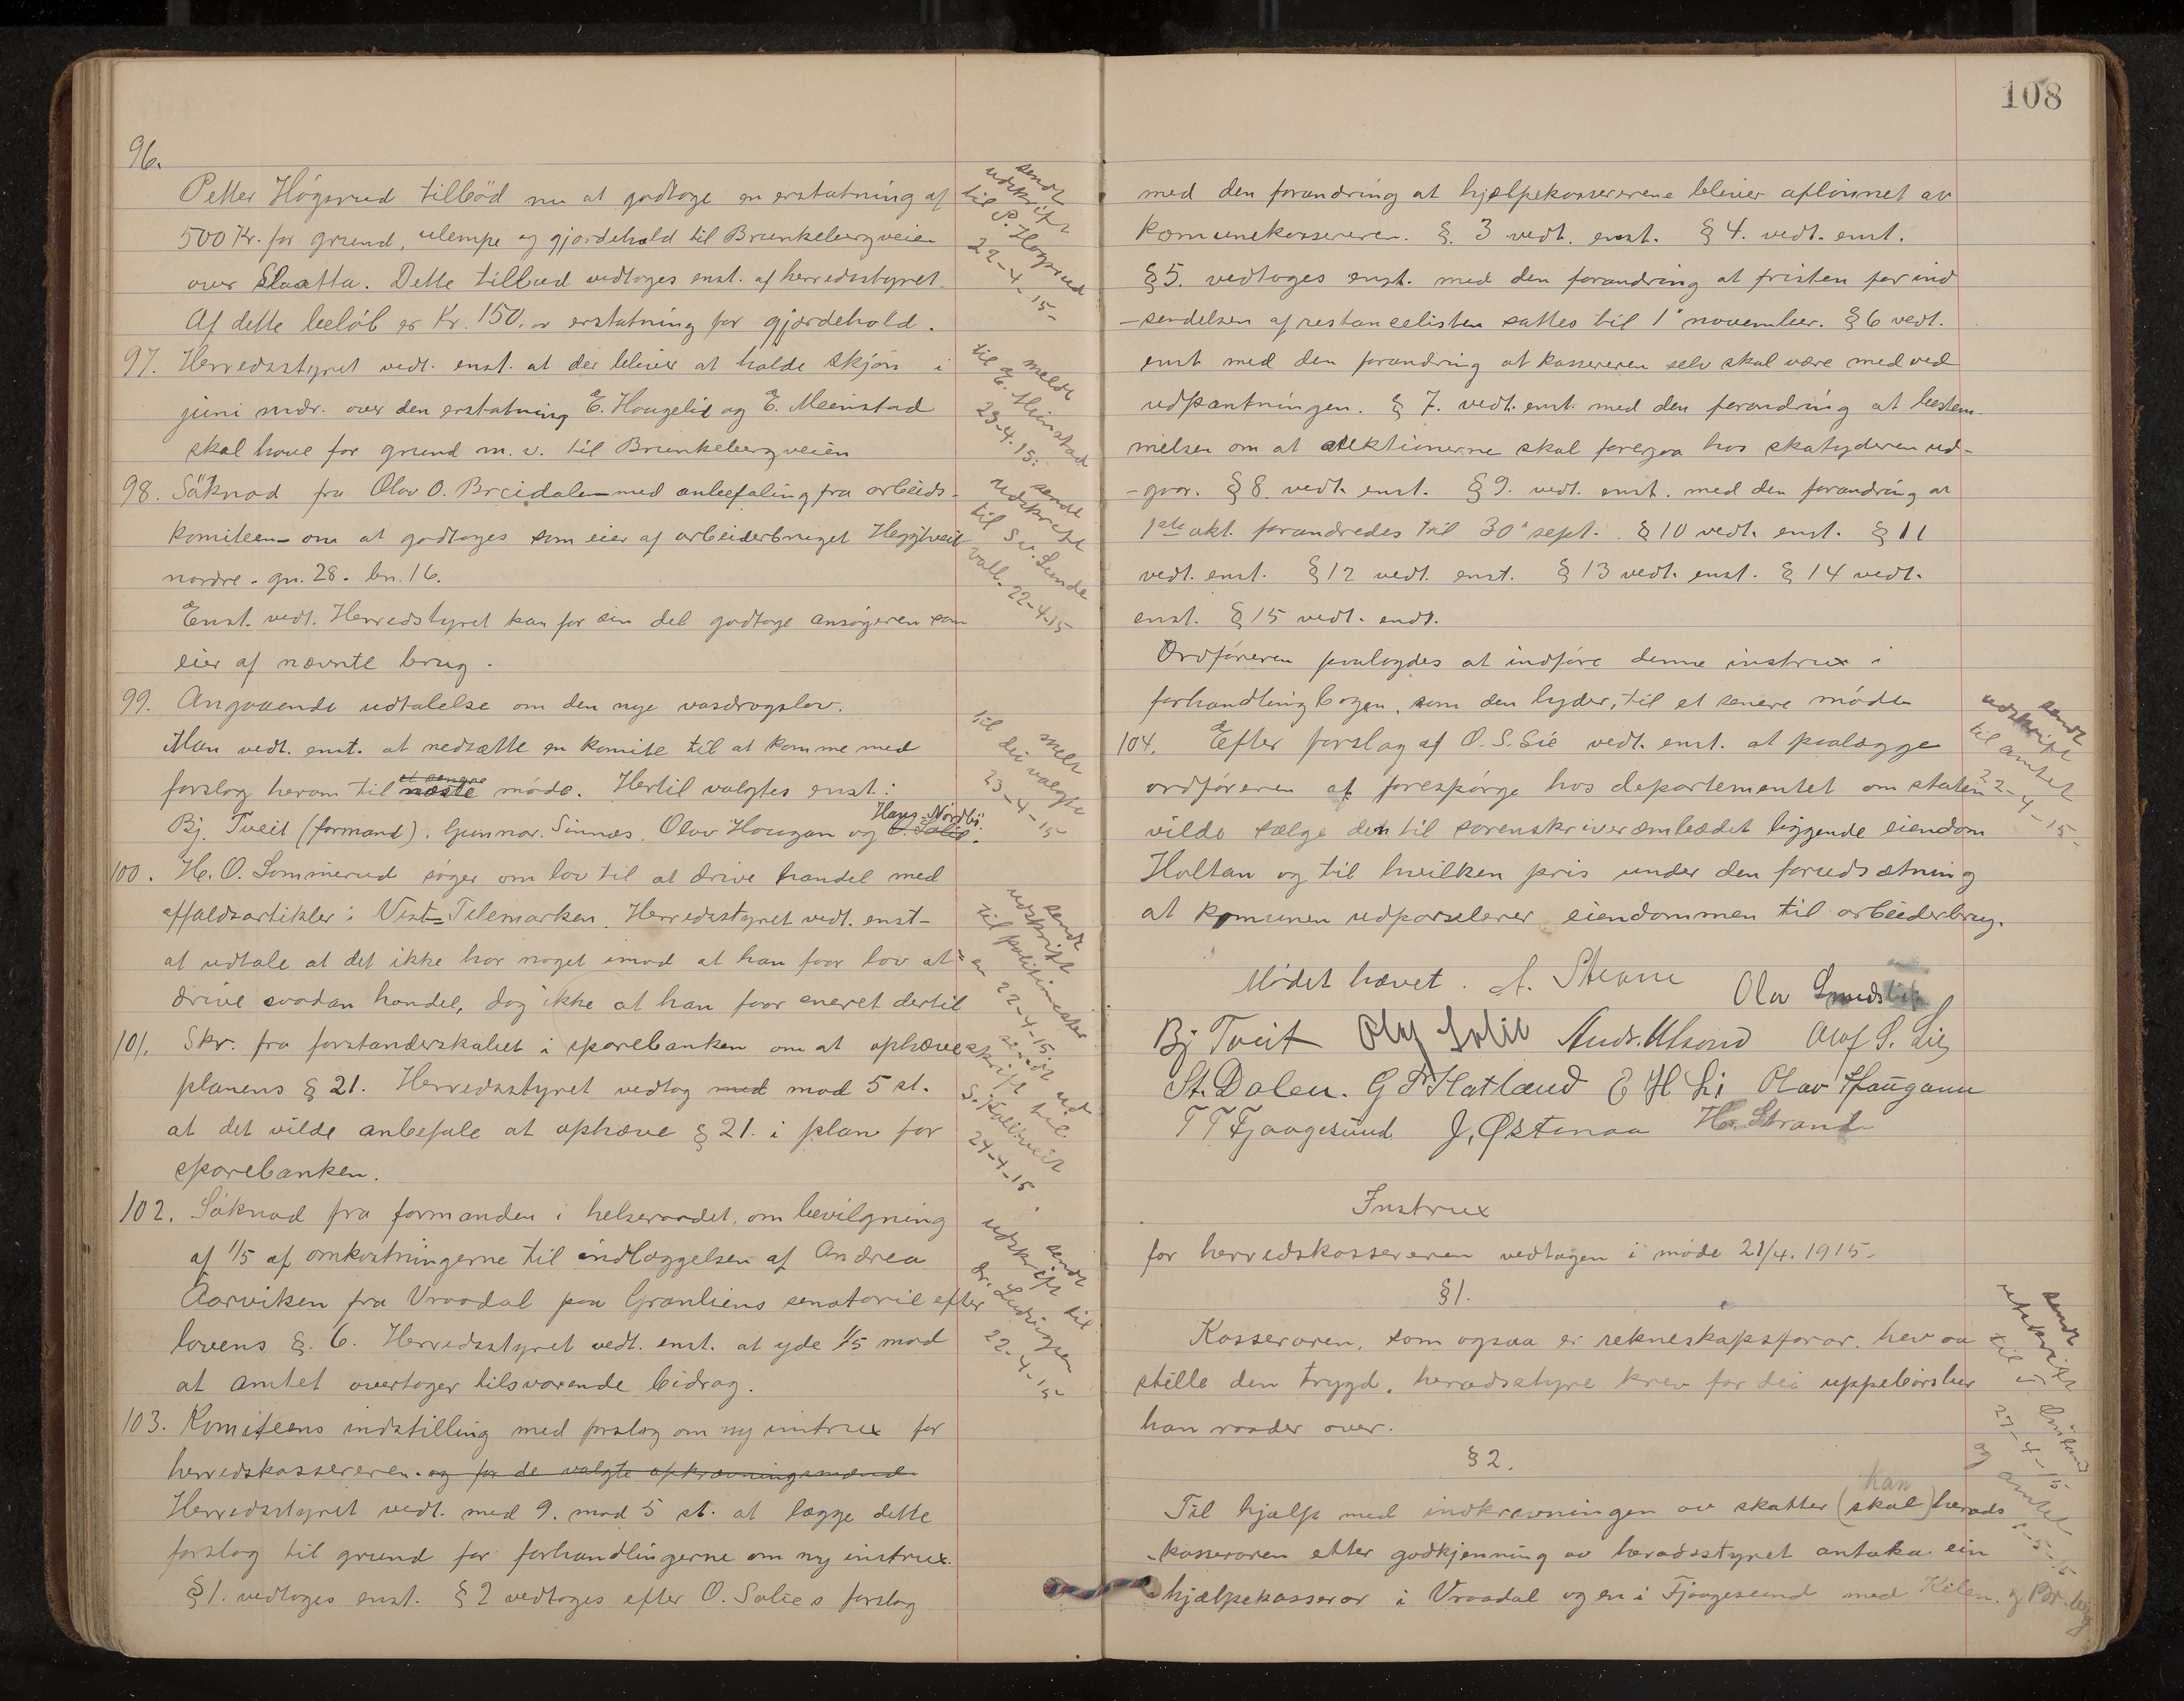 96.
Petter Högsrud tilböd nu at godtage en erstatning af
500 Kr. for grund, ulempe og gjærdehold til Brunkebergveien
over Slaatta. Dette tilbud vedtoges enst. af herredsstyret.
Af dette belöb er Kr. 150.- erstatning for gjærdehold.
sendt
udskrift
til P. Høgsrud
22-4-15-
97. Herredsstyret vedt. enst. at der bliver at holde skjön i
juni mdr. over den erstatning E. Haugelid og E. Meinstad
skal have for grund m. v. til Brunkebergveien
meldt
til E. Meinstad
23-4-15.
98. Söknad fra Olav O. Breidalen med anbefaling fra arbeids-
komiteen om at godtages som eier af arbeiderbruget Heggtveit
nordre - gn. 28 - bn. 16.
Enst. vedt. Herredstyret kan for sin del godtage ansögeren som
eier af nævnte brug.
sendt
udskrift
til S. v. Lunde
vall. 22-4-15
99. Angaaende udtalelse om den nye vasdragslov.
Man vedt. enst. at nedsætte en komite til at komme med
forslag herom til et senere næste möde. Hertil valgtes enst:
Bj. Tveit (formand). Gunnar Sinnes. Olav Haugan og O. Solid. Hans Nordbö.
melt
til dei valgte
23-4-15
100. H. O. Sommerud söger om lov til at drive handel med
affaldsartikler i Vest-Telemarken. Herredsstyret vedt. enst-
at udtale at det ikke har noget imod at han faar lov at
drive saadan handel, dog ikke at han faar eneret dertil
sendt
udskrift
til politimester
en 22-4-15.
101. Skr. fra forstanderskabet i sparebanken om at ophæve
planens § 21. Herredsstyret vedtog med mod 5 st.
at det vilde anbefale at ophæve § 21. i plan for
sparebanken.
sendt ud
skrift til
S. Kaltveit
24-4-15
102. Söknad fra formanden i helseraadet, om bevilgning
af 1/5 af omkostningerne til indlæggelsen af Andrea
Aarviken fra Vraadal paa Granliens sanatorie efter
lovens §. 6. Herredsstyret vedt. enst. at yde 1/5 mod
at amtet overtager tilsvarende bidrag.
sendt
udskrift til
dr. Ludvigsen
22-4-15
103. Komiteens indstilling med forslag om ny instrux for
herredskassereren. og for de valgte opkrævningsmænd.
Herredsstyret vedt. med 9. mod 5 st. at lægge dette
forslag til grund for forhandlingerne om ny instrux.
§ 1. vedtoges enst. § 2 vedtoges efter O. Solies forslag
108
med den forandring at hjælpekassererene bliver aflönnet av
komunekassereren. §. 3 vedt. enst. § 4. vedt. enst.
§ 5. vedtoges enst. med den forandring at fristen for ind
-sendelsen af restancelisten sattes til 1' november. § 6 vedt.
enst med den forandring at kassereren selv skal være med ved
udpantningen. § 7. vedt. enst. med den forandring at bestem-
melsen om at auktionerne skal foregaa hos skatyderen ud-
-gaar. § 8. vedt. enst. § 9. vedt. enst. med den forandring at
1ste okt. forandredes til 30' sept. § 10 vedt. enst. § 11
vedt. enst. § 12 vedt. enst. § 13 vedt. enst. § 14 vedt.
enst. § 15 vedt. endt.
Ordföreren paalagdes at indföre denne instrux i
forhandlingbogen, som den lyder, til et senere möde
104. Efter forslag af O. S. Lie vedt. enst. at paalægge
ordföreren at forespörge hos departementet om staten
vilde sælge den til sorenskriverembædet liggende eiendom
Holtan og til hvilken pris under den forudsætning
at komunen udparselerer eiendommen til arbeiderbrug.
sendt
udskrift
til amtet
22-4-15-
Mödet hævet. A. Steane Olav Smeds
Bj Tveit Olaf Solid Ands. Ulsand Olaf S. Lie
St. Dalen. G T Hatland E H Li Olav Haugann
T T Fjaagesund J. Østenaa H. Strand
Instrux
for herredskassereren vedtagen i möde 21/4. 1915.
§ 1.
Kasseraren, som ogsaa er rekneskapsförar, hev aa
stille den trygd, heradsstyre krev for dei uppebörsler
han raader over.
sendt
utskrift
til
27-4-15
og amtet
§ 2.
Til hjælp med indkrævningen av skatter (skal) han herads
-kasseraren etter godkjenning av heradsstyret antaka ein
hjælpekasserar i Vraadal og en i Fjaagesund med Kilen. og Br. berg